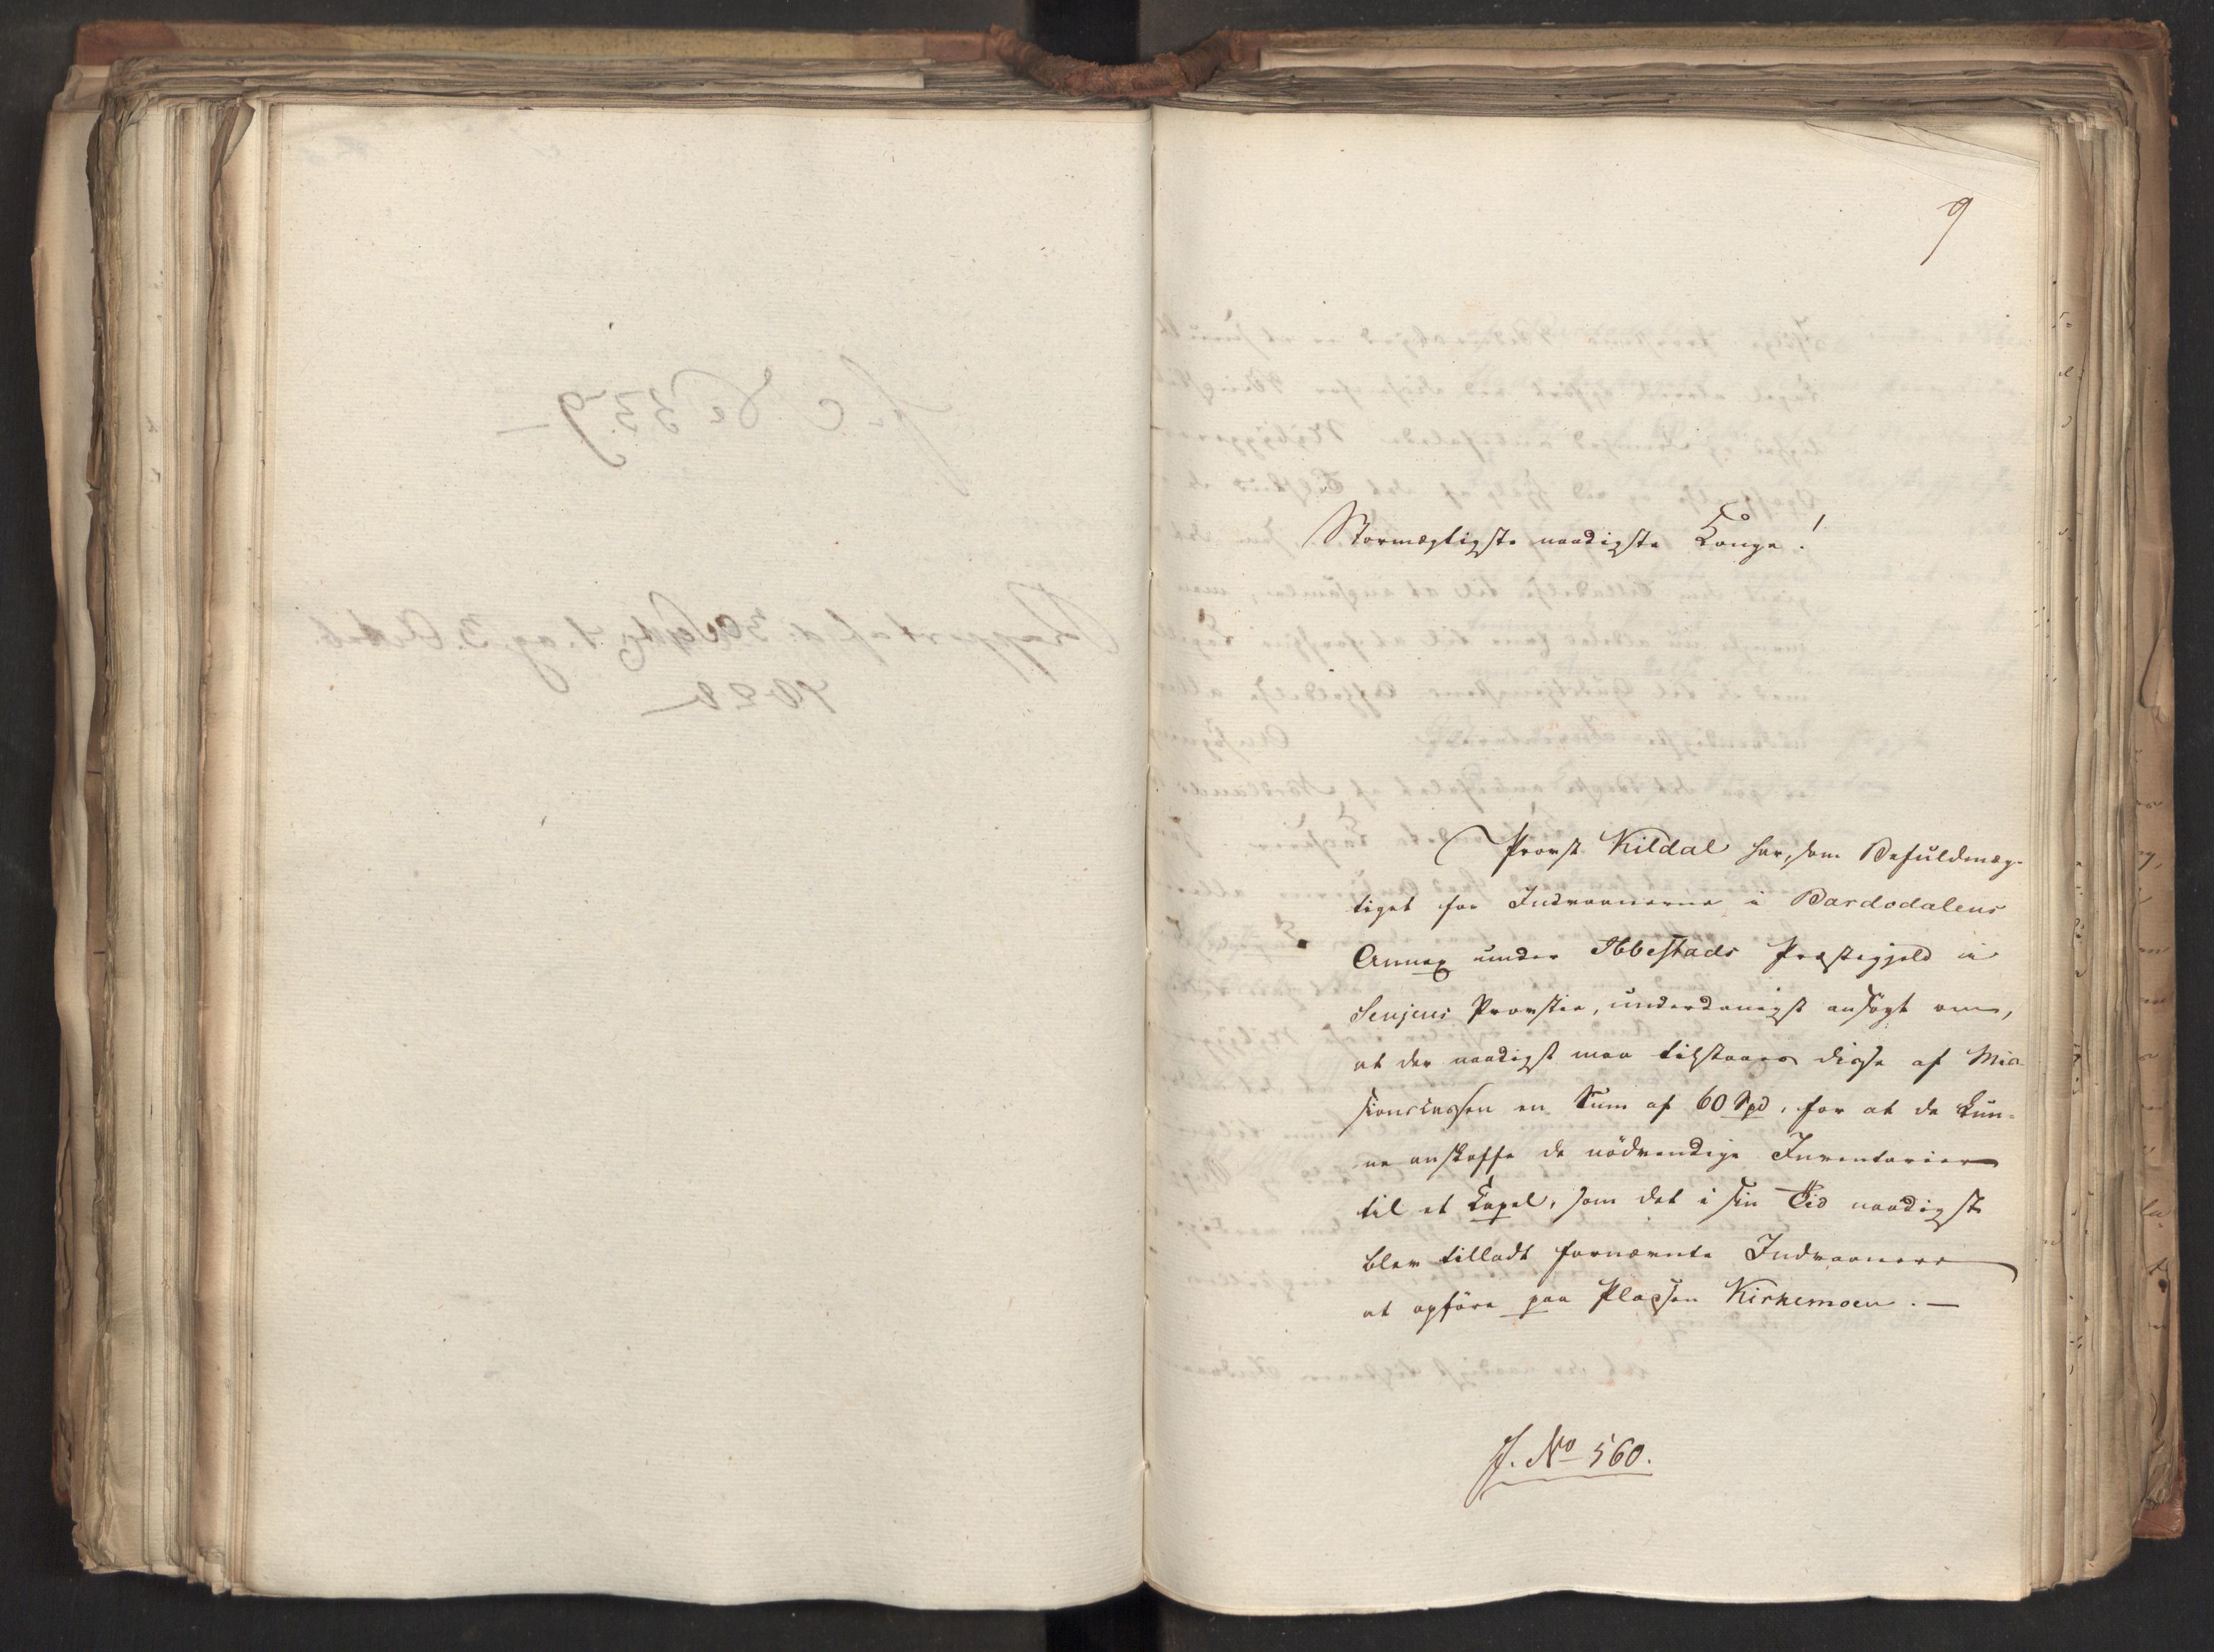 9
Stormægtigste naadigste Konge!
Provst Kildal har, som Befuldmæg-
tiget for Indvaanerne i Bardodalens
Annex under Ibbestads Præstegjeld i
Senjens Provstie, underdanigst ansögt om,
at der naadigst maa tilstaaes disse af Mis-
sionscassen en Sum af 60 Spd, for at de kun-
ne anskaffe de nödvendige Inventarier
til et Capel, som det i sin Tid naadigst
blev tilladt fornævnte Indvaanere
at opföre paa Pladsen Kirkemoen. —
J. No 560.